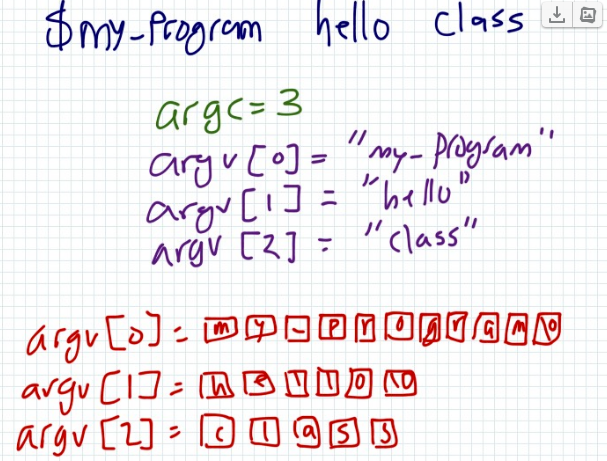 $my-Program hello class
argc = 3
argv[0] = "my-program"
argv[1] = "hello"
argv[2] = "class"
argv[0] = m y - p r o g r a m \0
argv[1] = h e l l o \0
argv[2] = c l a s s